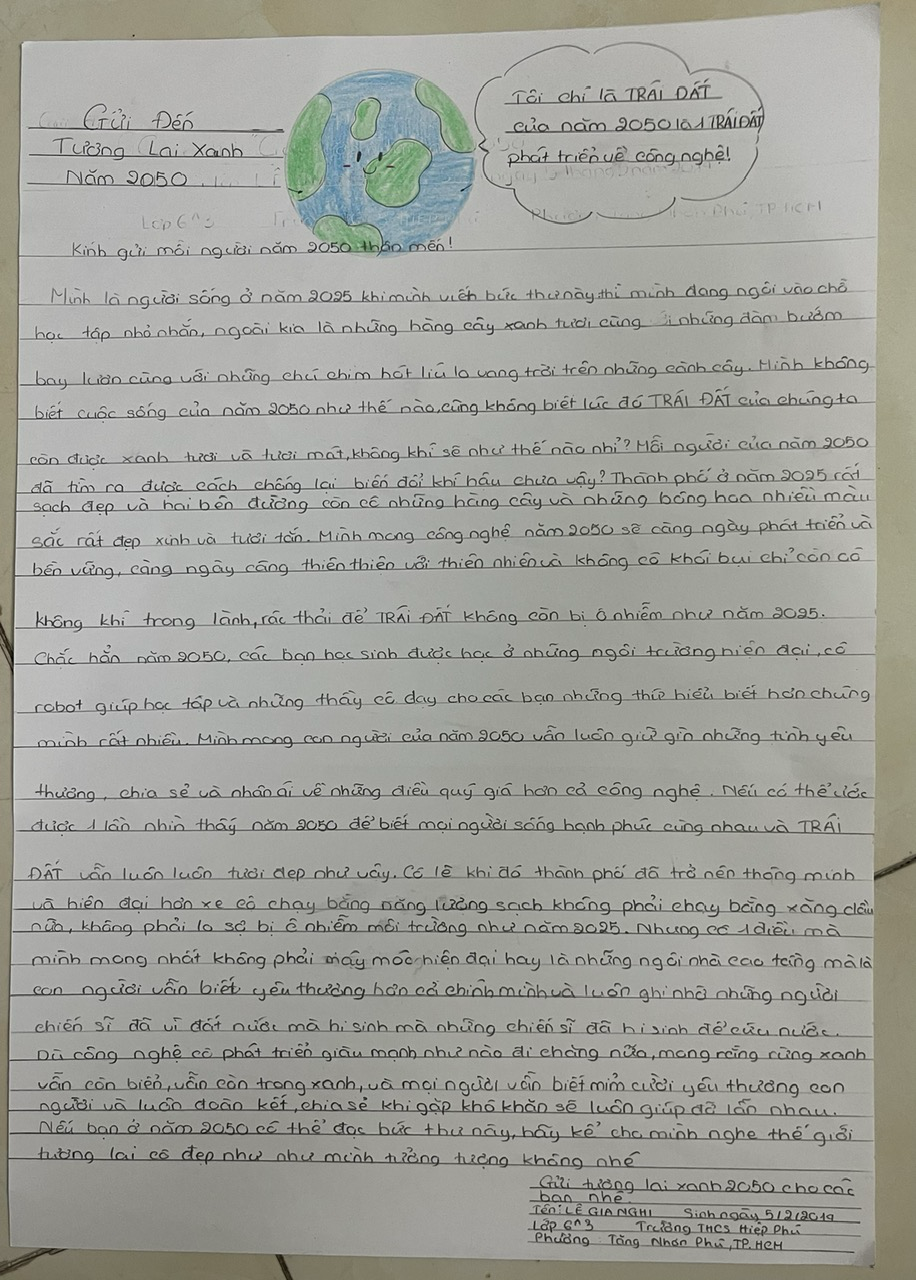 Gửi Đến
Tương Lai Xanh
Năm 2050
Tôi chỉ là TRÁI ĐẤT
của năm 2050 là 1 TRÁI ĐẤT
phát triển về công nghệ!
Lớp 6^3
Phú, TP.HCM
Kính gửi mỗi người năm 2050 thân mến!
Mình là người sống ở năm 2025 khi mình viết bức thư này thì mình đang ngồi vào chỗ
học tập nhỏ nhắn, ngoài kia là những hàng cây xanh tươi cùng những đàn bướm
bay lượn cùng với những chú chim hót líu lo vang trời trên những cành cây. Mình không
biết cuộc sống của năm 2050 như thế nào, cũng không biết lúc đó TRÁI ĐẤT của chúng ta
còn được xanh tươi và tươi mát, không khí sẽ như thế nào nhỉ? Mỗi người của năm 2050
đã tìm ra được cách chống lại biến đổi khí hậu chưa vậy? Thành phố ở năm 2025 rất
sạch đẹp và hai bên đường còn có những hàng cây và những bông hoa nhiều màu
sắc rất đẹp xinh và tươi tắn. Mình mong công nghệ năm 2050 sẽ càng ngày phát triển và
bền vững, càng ngày càng thiên thiện với thiên nhiên và không có khói bụi chỉ còn có
không khí trong lành, rác thải để TRÁI ĐẤT không còn bị ô nhiễm như năm 2025.
Chắc hẳn năm 2050, các bạn học sinh được học ở những ngôi trường hiện đại, có
robot giúp học tập và những thầy cô dạy cho các bạn những thứ hiểu biết hơn chúng
mình rất nhiều. Mình mong con người của năm 2050 vẫn luôn giữ gìn những tình yêu
thương, chia sẻ và nhân ái về những điều quý giá hơn cả công nghệ. Nếu có thể ước
được 1 lần nhìn thấy năm 2050 để biết mọi người sống hạnh phúc cùng nhau và TRÁI
ĐẤT vẫn luôn luôn tươi đẹp như vậy. Có lẽ khi đó thành phố đã trở nên thông minh
và hiện đại hơn xe cô chạy bằng năng lượng sạch không phải chạy bằng xăng dầu
nữa, không phải lo sợ bị ô nhiễm môi trường như năm 2025. Nhưng có 1 điều mà
mình mong nhất không phải máy móc hiện đại hay là những ngôi nhà cao tầng mà là
con người vẫn biết yêu thương hơn cả chính mình và luôn ghi nhớ những người
chiến sĩ đã vì đất nước mà hi sinh mà những chiến sĩ đã hi sinh để cứu nước.
Dù công nghệ có phát triển giàu mạnh như nào đi chăng nữa, mong rằng rừng xanh
vẫn còn biển, vẫn còn trong xanh, và mọi người vẫn biết mỉm cười yêu thương con
người và luôn đoàn kết, chia sẻ khi gặp khó khăn sẽ luôn giúp đỡ lẫn nhau.
Nếu bạn ở năm 2050 có thể đọc bức thư này, hãy kể cho mình nghe thế giới
tương lai có đẹp như như mình tưởng tượng không nhé
Gửi tương lai xanh 2050 cho các
bạn nhé.
Tên: LÊ GIA NGHI Sinh ngày 5/2/2014
Lớp 6^3 Trường THCS Hiệp Phú
Phường Tăng Nhơn Phú, TP.HCM